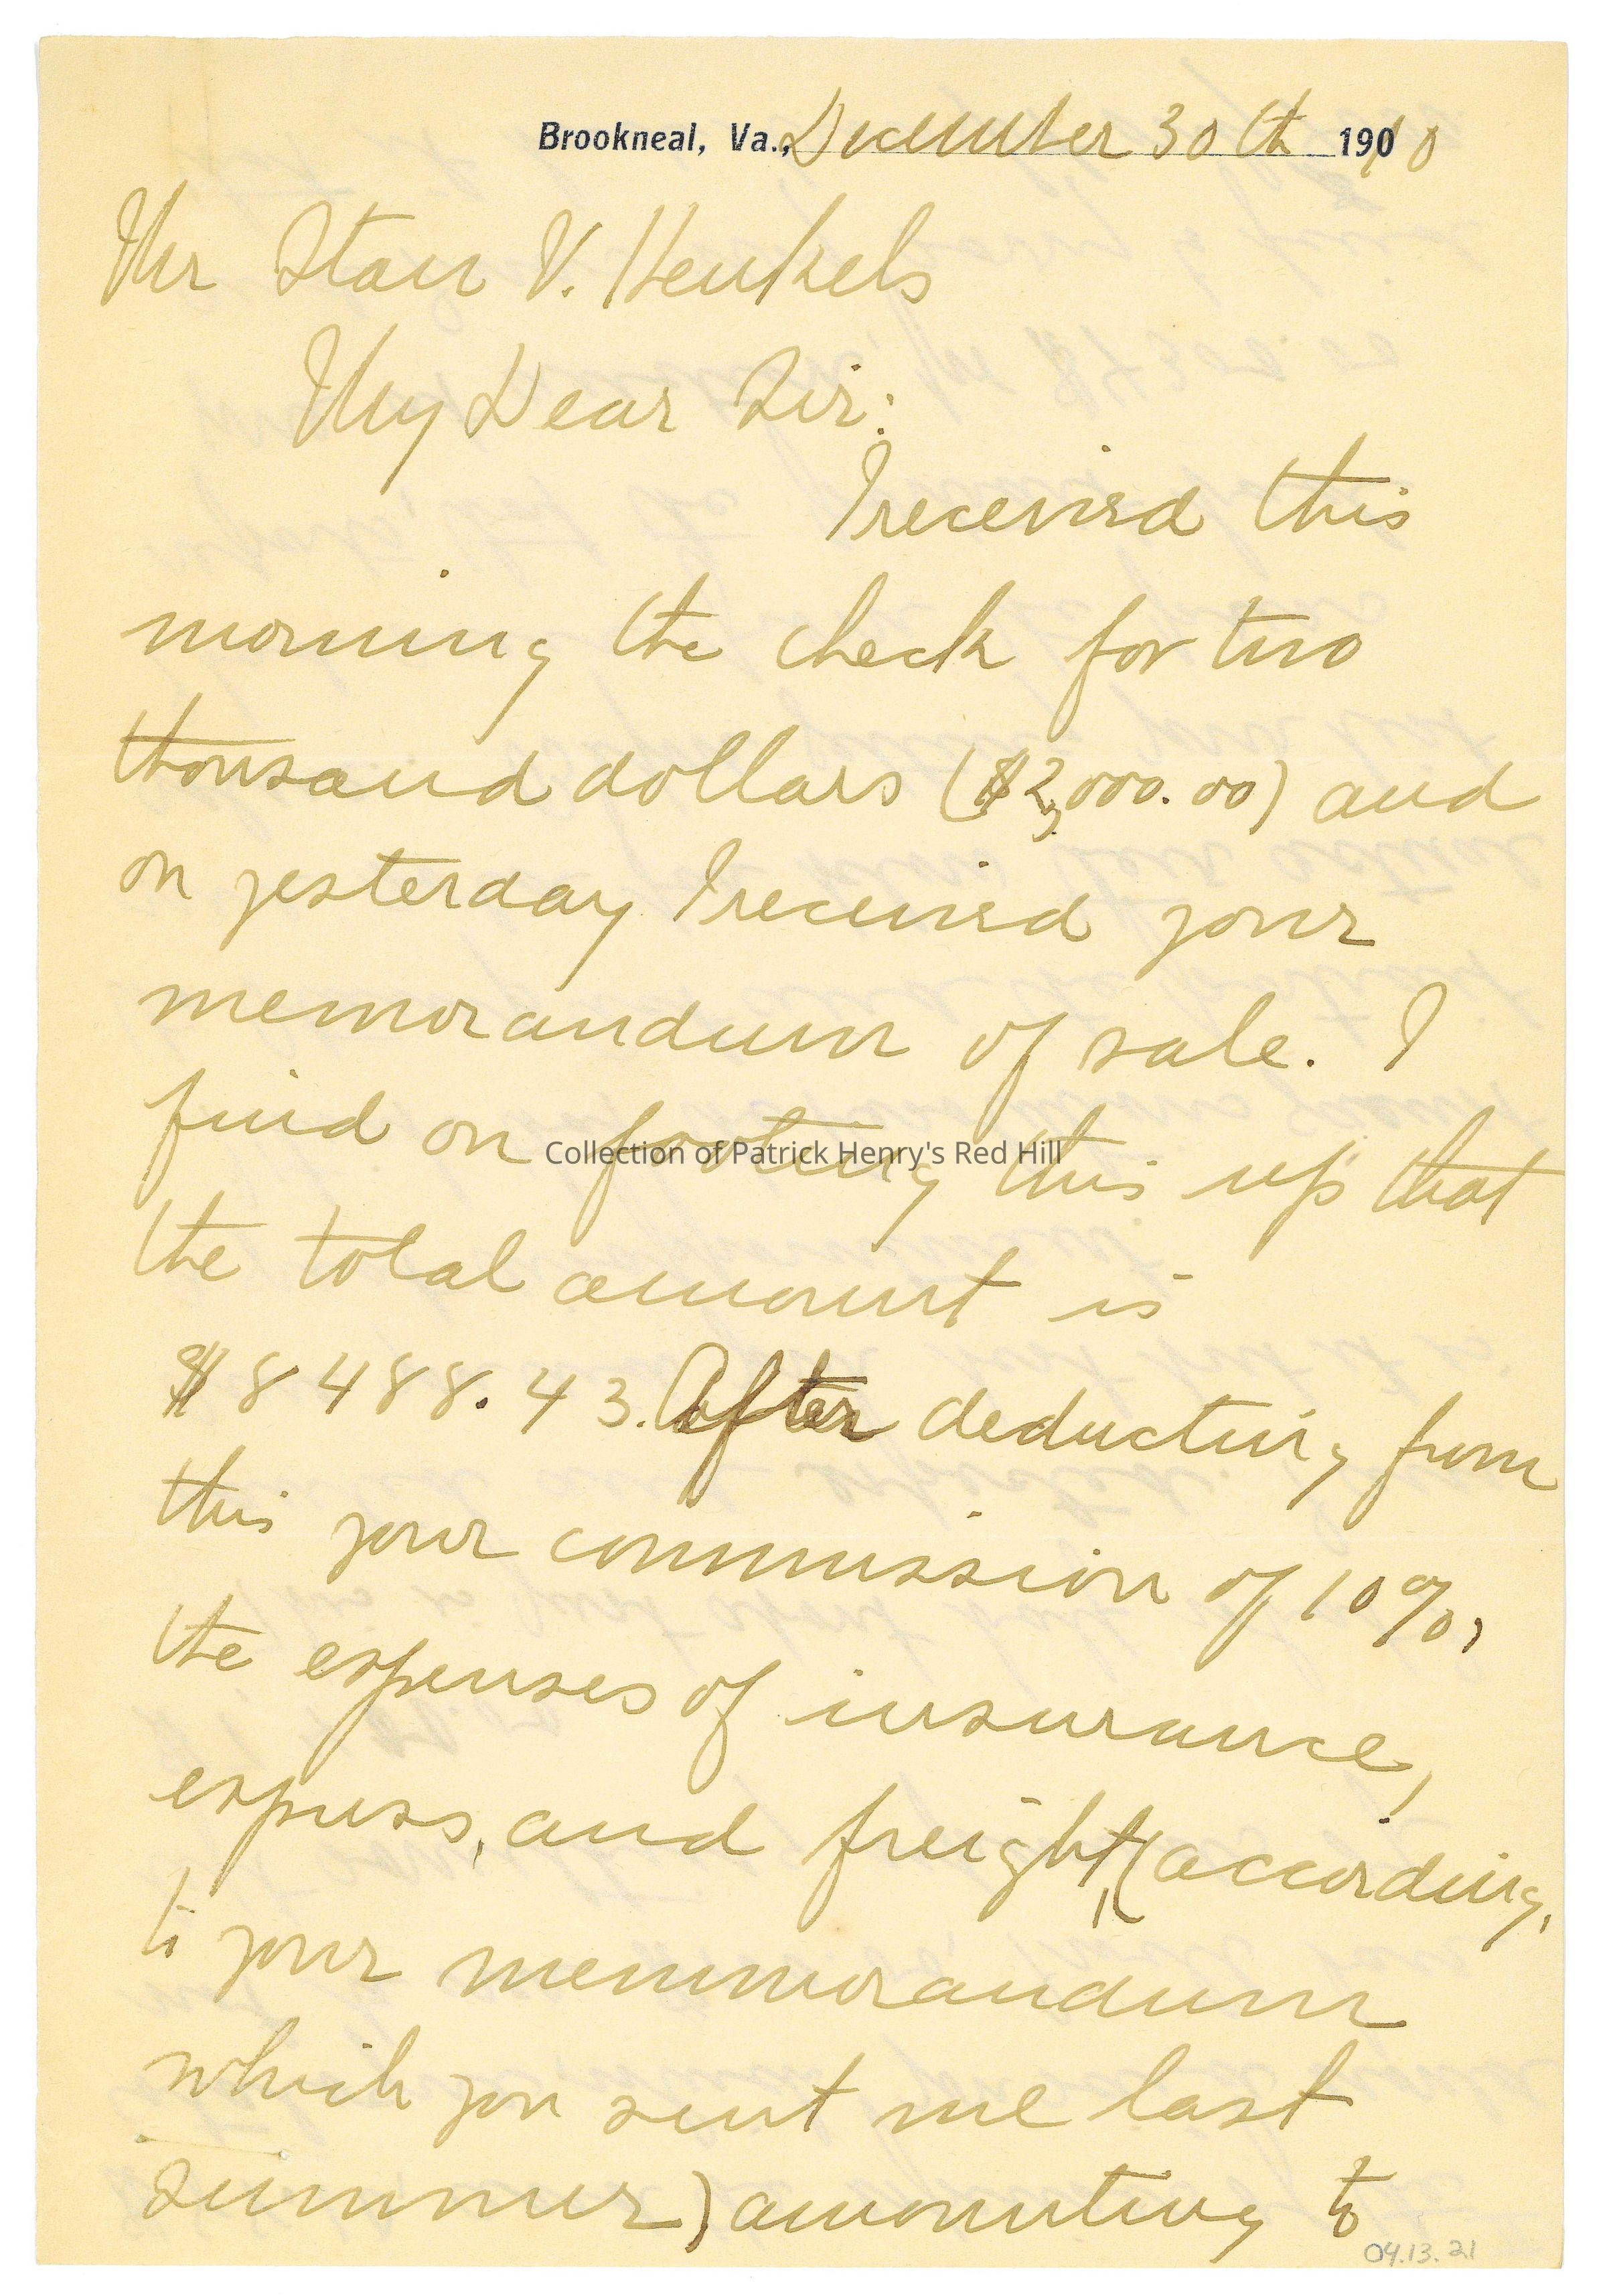 Brookneal, Va., December 30th 1910
Mr Stan V. Henkels
My Dear Sir:
I received this
morning the check for two
thousand dollars ($2,000.00) and
on yesterday I received your
memorandum of sale. I
find on footing this up that
Collection of Patrick Henry's Red Hill
the total amount is
$8488.43. After deducting from
this your commission of 10%,
the expenses of insurance,
express, and freight, (according,
to your memmorandum
which you sent me last
summer) amounting to
04.13.21